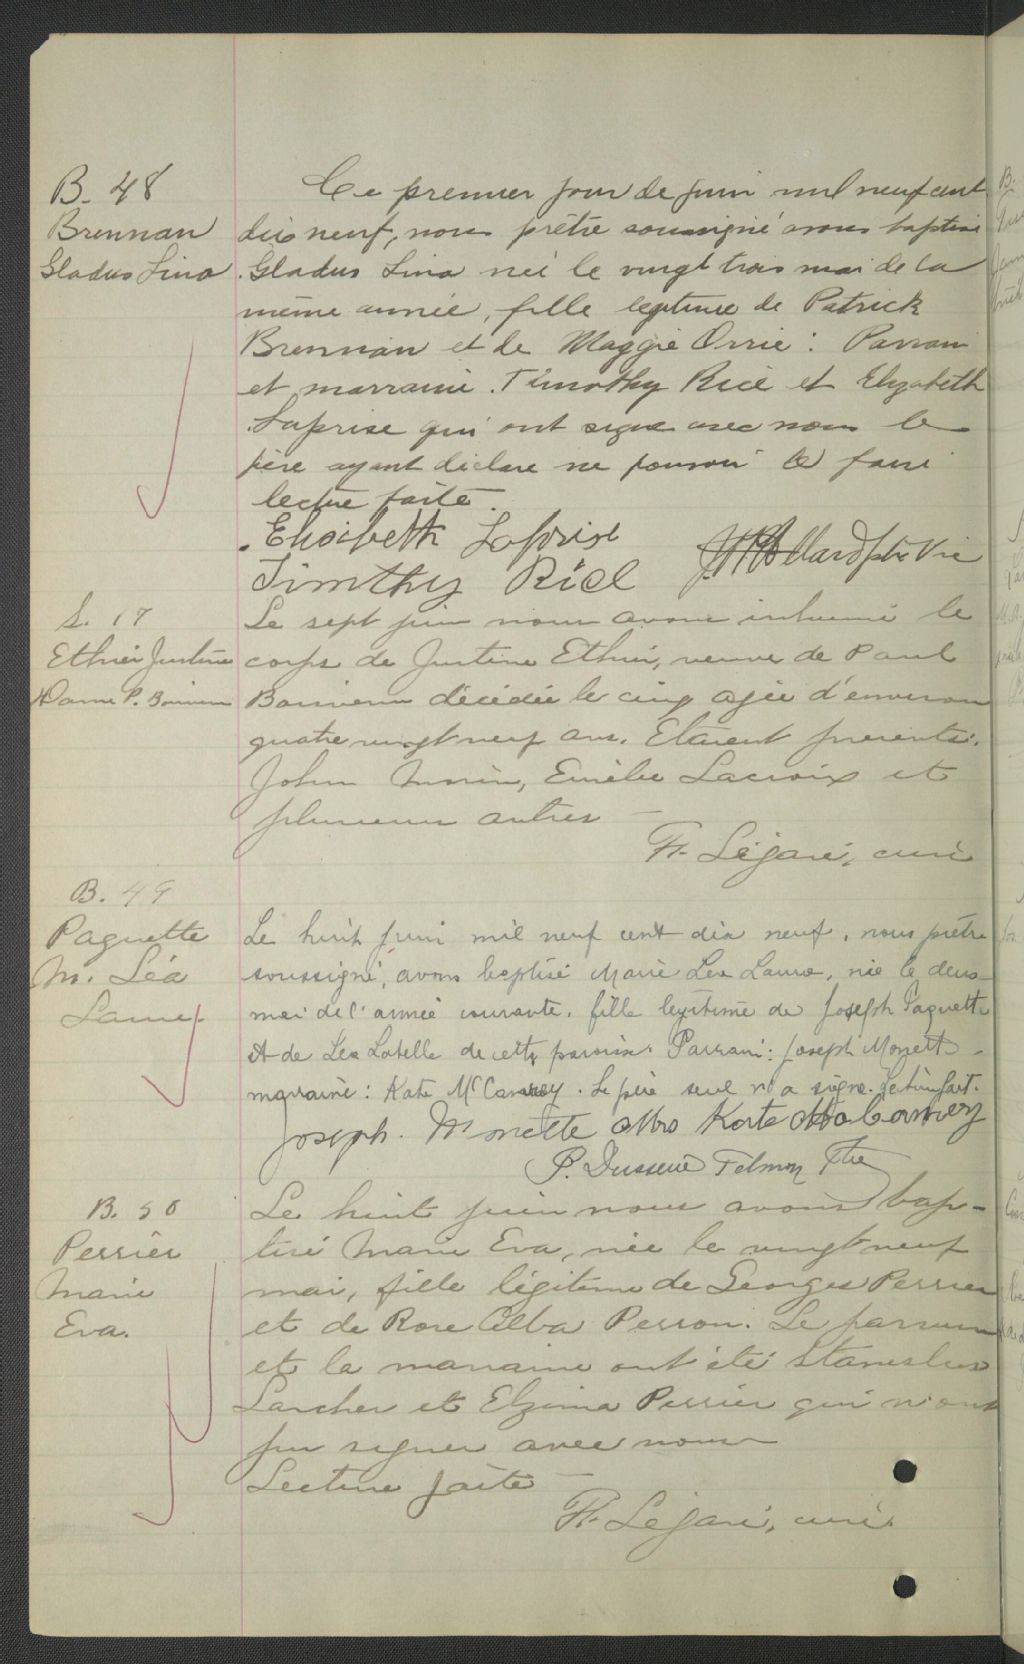 B. 48
Brennan
Gladus Lina
Ce premier jour de juin mil neuf cent
dix neuf, nous prêtre soussigné avons baptisé
Gladus Lina née le vingt trois mai de la
même année, fille légitime de Patrick
Brennan et de Maggie Orrie : Parrain
et marraine. Timothy Rice et Elizabeth
Laprise qui ont signé avec nous le
père ayant déclaré ne pouvoir le faire
lecture faite.
Elisabeth Laprise
Timthy Rice
ptr Vic
S. 17
Ethier Justine
Dame P. Boisvenu
Le sept juin nous avons inhumé le
corps de Justine Ethier, veuve de Paul
Boisvenu décédée le cinq agée d'environ
quatre vingt neuf ans. Etaient presents:
John Morin, Emélie Lacroix et
plusieurs autres —
Fr. Légaré, curé
B. 49
Paquette
M. Léa
Laura
Le huit juin mil neuf cent dix neuf, nous prêtre
soussigné, avons baptisé Marie Lea Laura, née le deux
mai de l'année courante, fille legitime de Joseph Paquette
et de Léa Labelle de cette paroisse. Parrain: Joseph Monette
marraine: Kate McCanvey. Le père seul n'a signé. Lecture fait.
Joseph. Monette Mrs Kate McCanvey
P. Ptre
B. 50
Perrier
Marie
Eva.
Le huit juin nous avons bap-
tisé Marie Eva, née le vingt neuf
mai, fille légitime de Georges Perrier
et de Rose Alba Perron. Le parrain
et la marraine ont été Stanislas
Larcher et Elzima Perrier qui n'ont
pu signer avec nous
Lecture faite —
Fr. Légaré, curé.